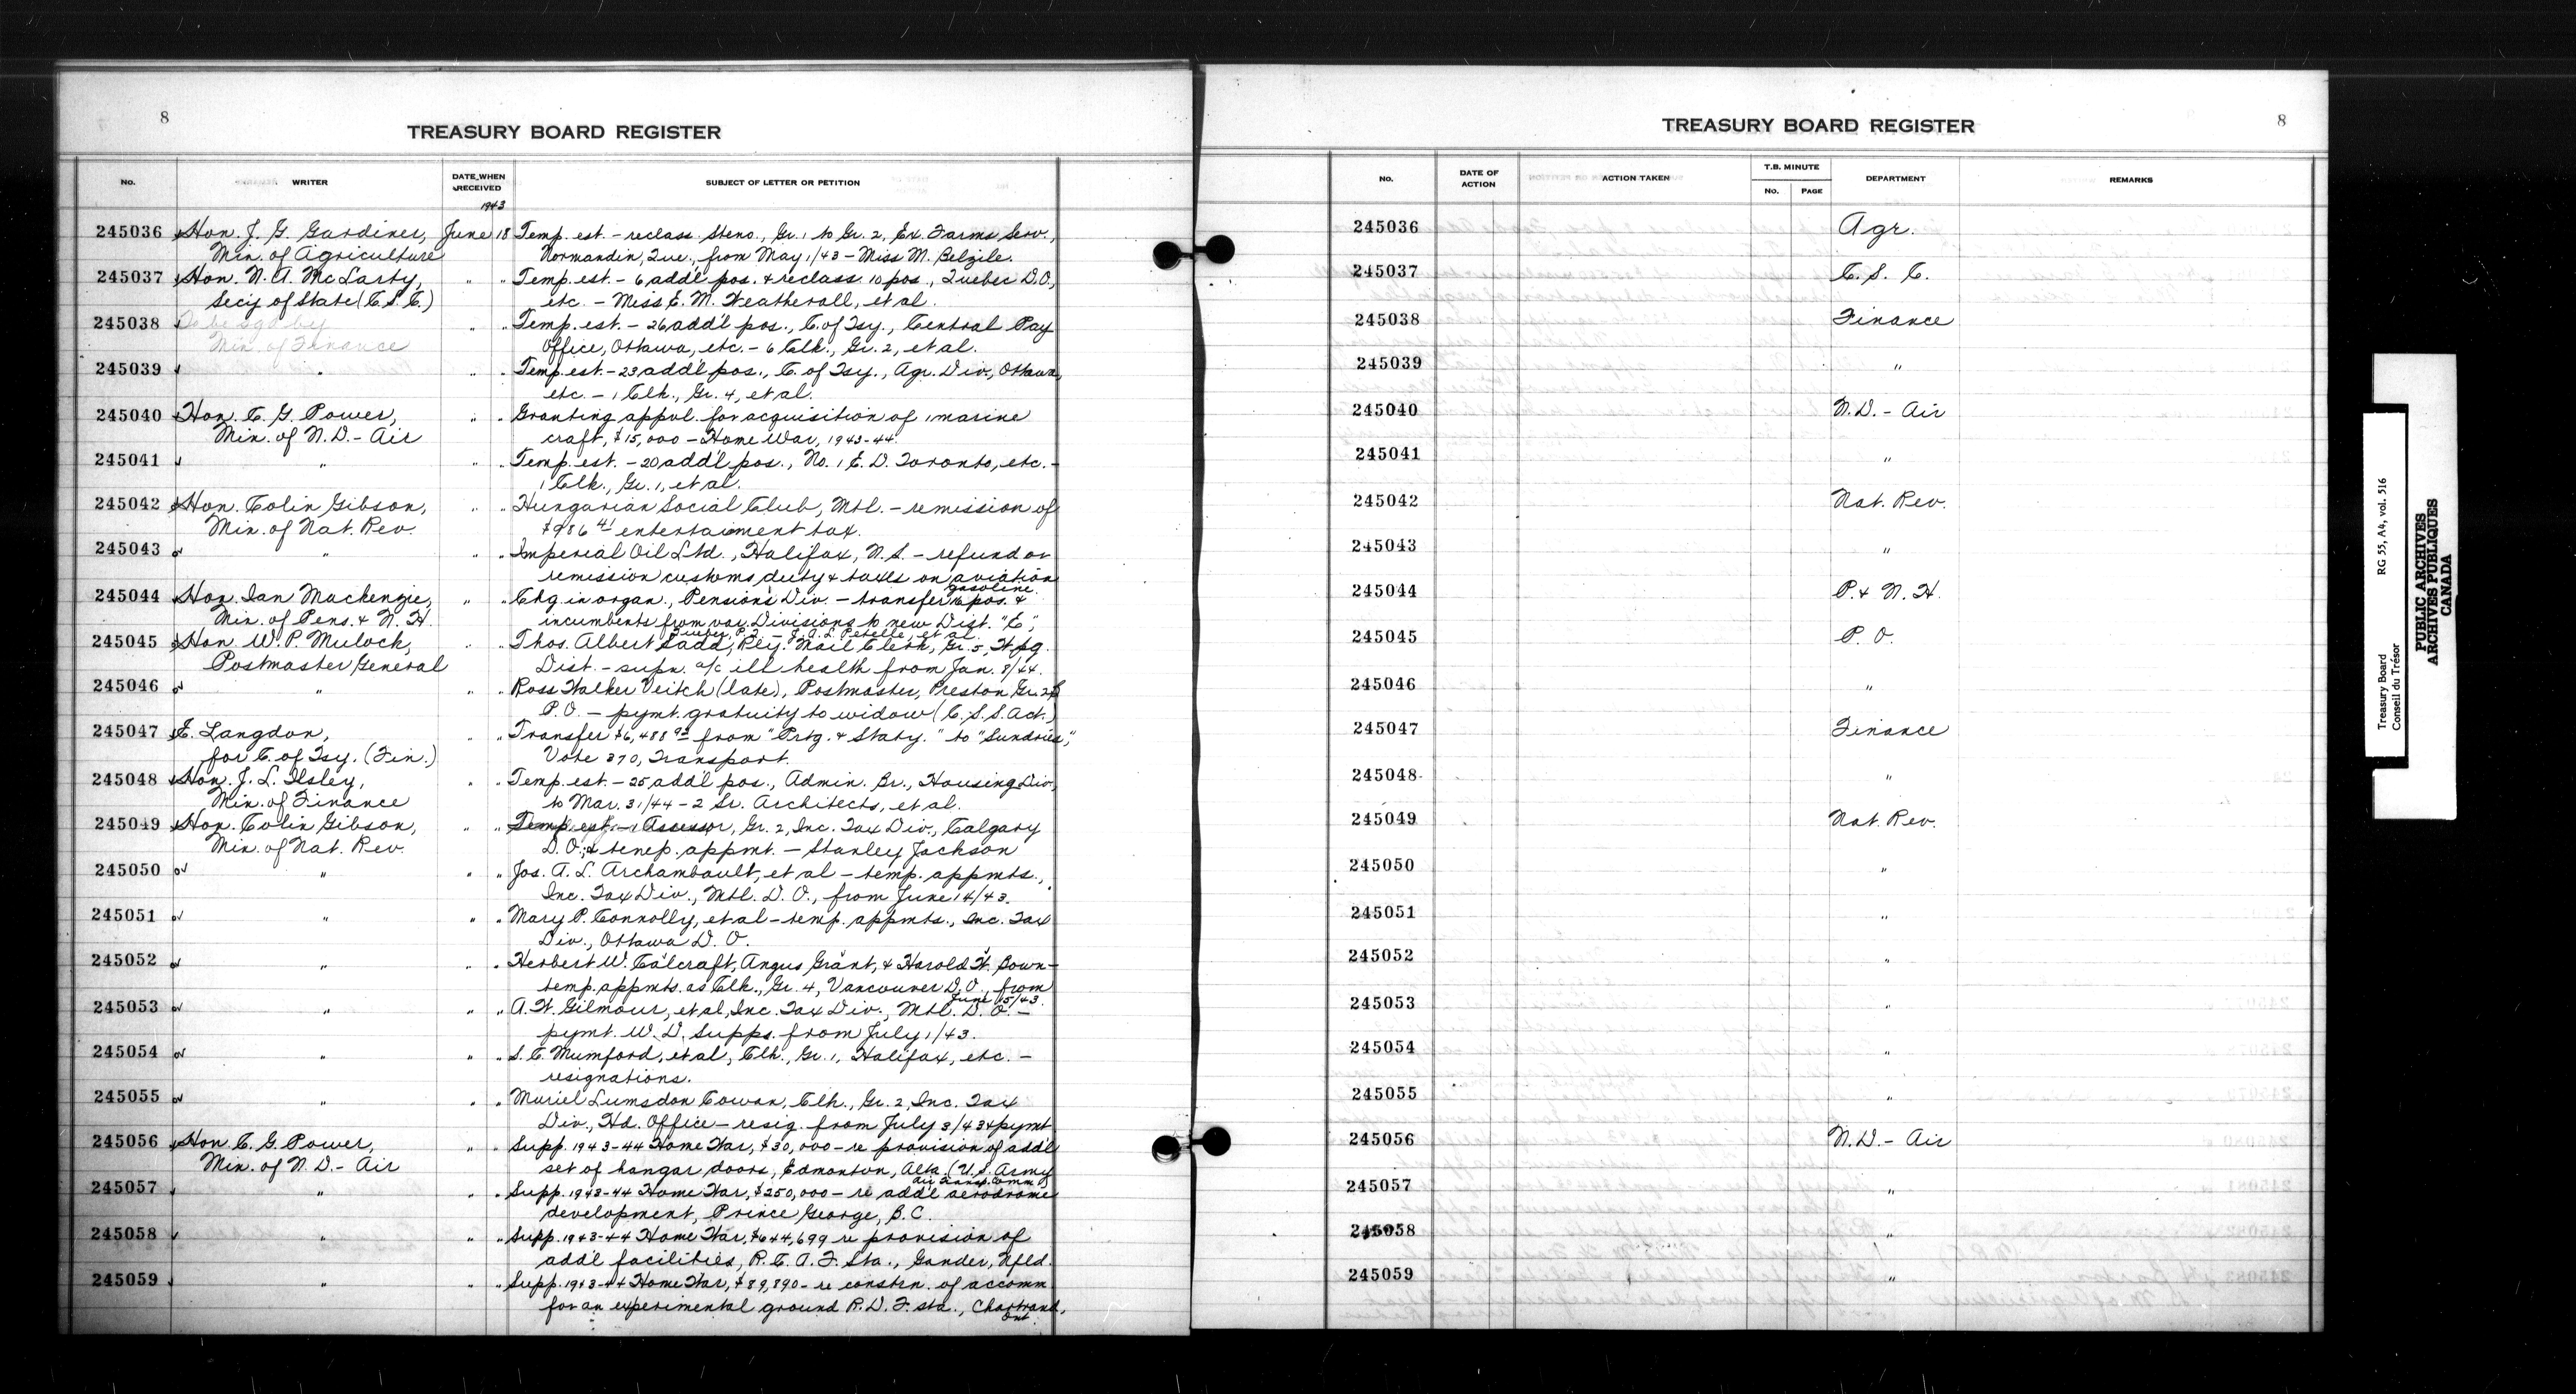 8
TREASURY BOARD REGISTER
No.
WRITER
DATE WHEN RECEIVED
SUBJECT OF LETTER OR PETITION
1943
245036 Hon. J. G. Gardiner, June 18 Temp. est. - reclass. Steno., Gr. 1 to Gr. 2, Ex. Farms Serv.,
Min. of Agriculture Normandin, Que., from May 1/43 - Miss M. Belzile.
245037 Hon. N. A. McLarty, " " Temp. est. - 6 add'l pos. & reclass. 10 pos., Quebec D.O.,
Sec'y of State (C.S.C.) etc. - Miss E. M. Weatherall, et al.
245038 To be sgd by " " Temp. est. - 26 add'l pos., C. of Tsy., Central Pay
Min. of Finance Office, Ottawa, etc. - 6 Clk., Gr. 2, et al.
245039 " " " Temp. est. - 23 add'l pos., C. of Tsy., Agr. Div., Ottawa,
etc. - 1 Clk., Gr. 4, et al.
245040 Hon. C. G. Power, " " Granting appvl. for acquisition of 1 marine
Min. of N.D. - Air craft, $15,000 - Home War, 1943-44.
245041 " " " Temp. est. - 20 add'l pos., No. 1 E.D. Toronto, etc. -
1 Clk., Gr. 1, et al.
245042 Hon. Colin Gibson, " " Hungarian Social Club, Mtl. - remission of
Min. of Nat. Rev. $986 41 entertainment tax.
245043 " " " Imperial Oil Ltd., Halifax, N.S. - refund or
remission customs duty & taxes on aviation
gasoline.
245044 Hon. Ian Mackenzie, " " Chg. in organ., Pensions Div. - transfer 16 pos. &
Min. of Pens. & N.H. incumbents from var. Divisions to new Dist. "E",
Quebec, P.Q. - J. A. L. Petelle, et al.
245045 Hon. W. P. Mulock, " " Thos. Albert Ladd, Rly. Mail Clerk, Gr. 5, Wpg.
Postmaster General Dist. - supn. a/c ill health from Jan. 8/44.
245046 " " " Ross Walker Veitch (late), Postmaster, Preston Gr. 24
P.O. - pymt. gratuity to widow (C.S.S. Act.)
245047 E. Langdon, " " Transfer $6,488 from "Prtg. & Staty." to "Sundries",
for C. of Tsy. (Fin.) Vote 370, Transport.
245048 Hon. J. L. Ilsley, " " Temp. est. - 25 add'l pos., Admin. Br., Housing Div.
Min. of Finance to Mar. 31/44 - 2 Sr. Architects, et al.
245049 Hon. Colin Gibson, " " Temp. est. - 1 Assessor, Gr. 2, Inc. Tax Div., Calgary
Min. of Nat. Rev. D.O., & temp. appmt. - Stanley Jackson
245050 " " " Jos. A. L. Archambault, et al - temp. appmts.,
Inc. Tax Div., Mtl. D.O., from June 14/43.
245051 " " " Mary P. Connolly, et al - temp. appmts., Inc. Tax
Div., Ottawa D.O.
245052 " " " Herbert W. Calcraft, Angus Grant, & Harold W. Bown -
temp. appmts. as Clk., Gr. 4, Vancouver D.O., from
June 15/43.
245053 " " " A. W. Gilmour, et al, Inc. Tax Div., Mtl. D.O. -
pymt. W.D. Supps. from July 1/43.
245054 " " " S. C. Mumford, et al, Clk., Gr. 1, Halifax, etc. -
resignations.
245055 " " " Muriel Lumsdon Cowan, Clk., Gr. 2, Inc. Tax
Div., Hd. Office - resig. from July 3/43 & pymt
245056 Hon. C. G. Power, " " Supp. 1943-44 Home War, $30,000 - re provision of add'l
Min. of N.D. - Air set of hangar doors, Edmonton, Alta. (U.S. Army
Air Transp. Comm.)
245057 " " " Supp. 1943-44 Home War, $250,000 - re add'l aerodrome
development, Prince George, B.C.
245058 " " " Supp. 1943-44 Home War, $644,699 re provision of
add'l facilities, R.C.A.F. Sta., Gander, Nfld.
245059 " " " Supp. 1943-44 Home War, $89,890 - re constrn. of accomm.
for an experimental ground R.D.F. sta., Chartrand,
Ont.
TREASURY BOARD REGISTER
8
No.
DATE OF ACTION
ACTION TAKEN
T.B. MINUTE
No.
PAGE
DEPARTMENT
REMARKS
245036 Agr.
245037 C.S.C.
245038 Finance
245039 "
245040 N.D. - Air
245041 "
245042 Nat. Rev.
245043 "
245044 P. & N.H.
245045 P.O.
245046 "
245047 Finance
245048 "
245049 Nat. Rev.
245050 "
245051 "
245052 "
245053 "
245054 "
245055 "
245056 N.D. - Air
245057 "
245058 "
245059 "
Treasury Board
Conseil du Trésor
RG 55, A4, vol. 516
PUBLIC ARCHIVES
ARCHIVES PUBLIQUES
CANADA